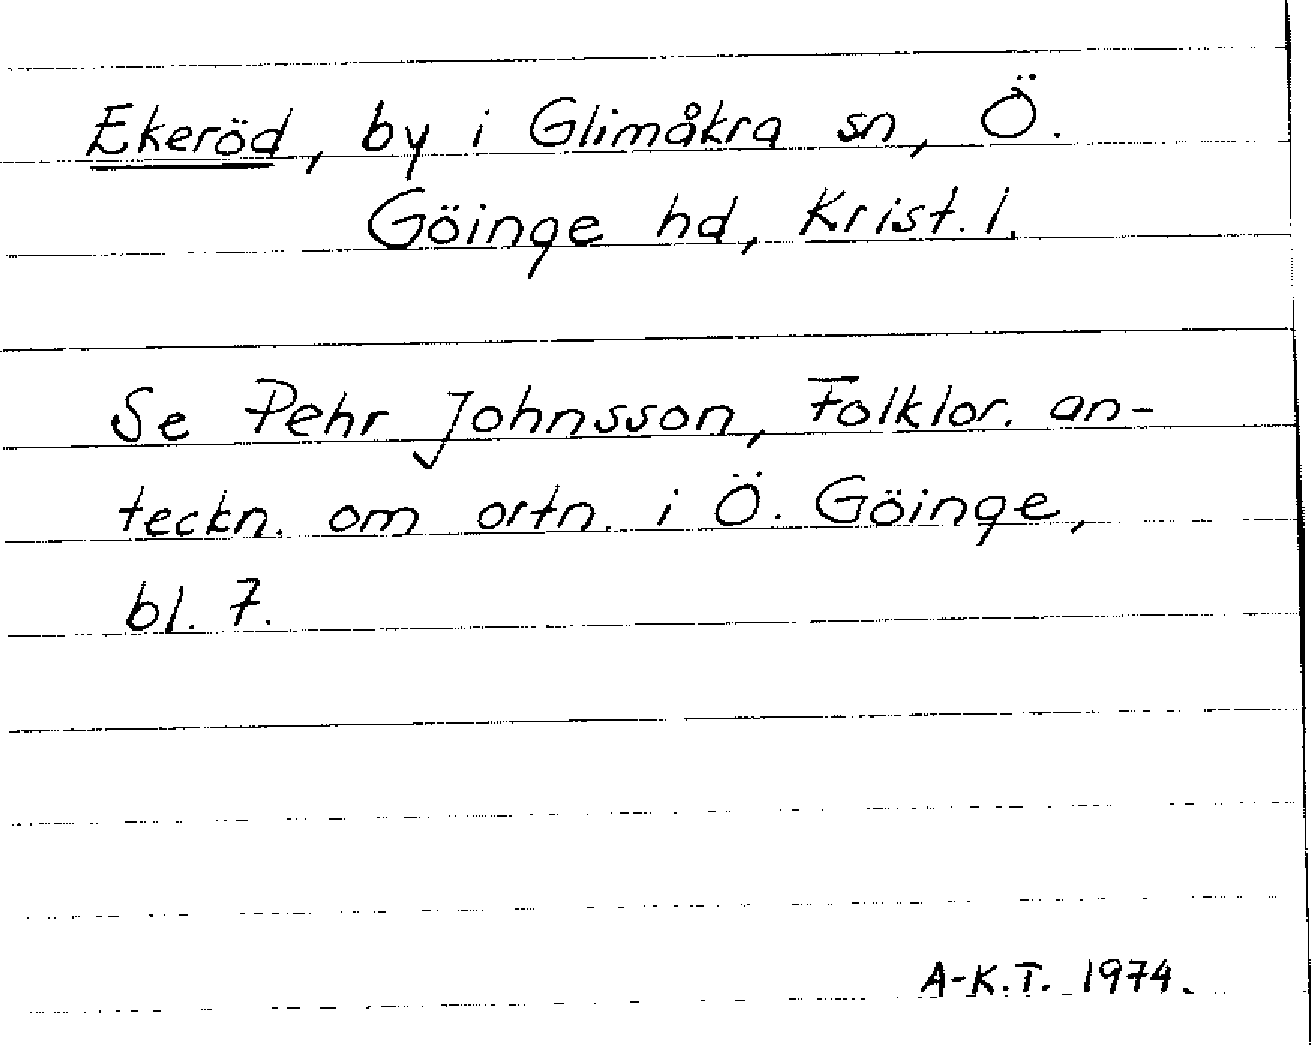 Ekeröd, by i Glimåkra sn, Ö.
Göinge hd, Krist. l.
Se Pehr Johnsson, Folklor. an-
teckn. om ortn. i Ö. Göinge,
bl. 7.
A-K.T. 1974.